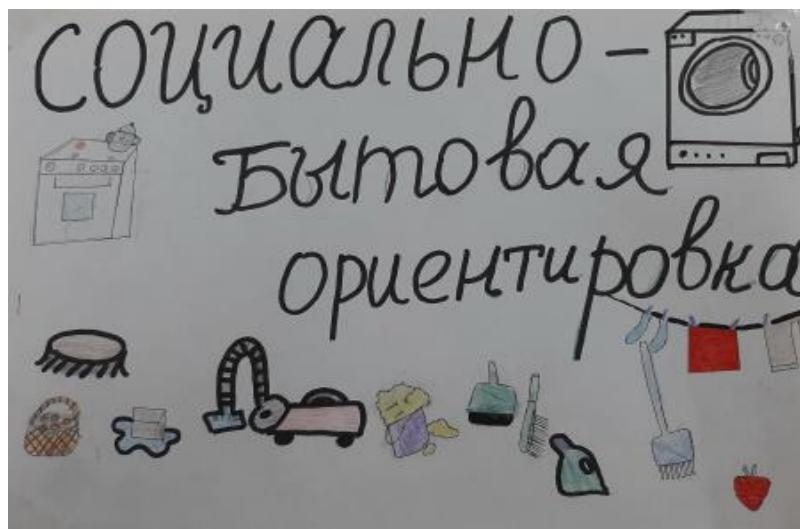 СОЦИАЛЬНО -
Бытовая
ориентировка